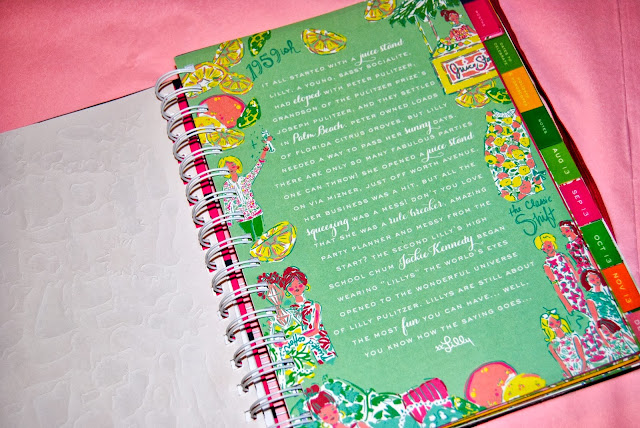 1959ish
IT ALL STARTED WITH A juice stand.
LILLY, A YOUNG, SASSY SOCIALITE,
HAD eloped WITH PETER PULITZER,
GRANDSON OF THE PULITZER PRIZE'S
JOSEPH PULITZER, AND THEY SETTLED
IN Palm Beach. PETER OWNED LOADS
OF FLORIDA CITRUS GROVES, BUT LILLY
NEEDED A WAY TO PASS HER sunny DAYS.
THERE ARE ONLY SO MANY FABULOUS PARTIES
ONE CAN THROW! SHE OPENED A juice stand
ON VIA MIZNER, JUST OFF WORTH AVENUE.
HER BUSINESS WAS A HIT, BUT ALL THE
squeezing WAS A MESS! DON'T YOU LOVE
THAT SHE WAS A rule breaker, AMAZING
PARTY PLANNER AND MESSY FROM THE
START? THE SECOND LILLY'S HIGH
SCHOOL CHUM Jackie Kennedy BEGAN
WEARING "LILLYS", THE WORLD'S EYES
OPENED TO THE WONDERFUL UNIVERSE
OF LILLY PULITZER. LILLYS ARE STILL ABOUT
THE MOST fun YOU CAN HAVE... WELL,
YOU KNOW HOW THE SAYING GOES...
xoLilly
Juice Stand
the Classic
Shift
NOTES
AUG 13
SEP 13
OCT 13
NOV 13